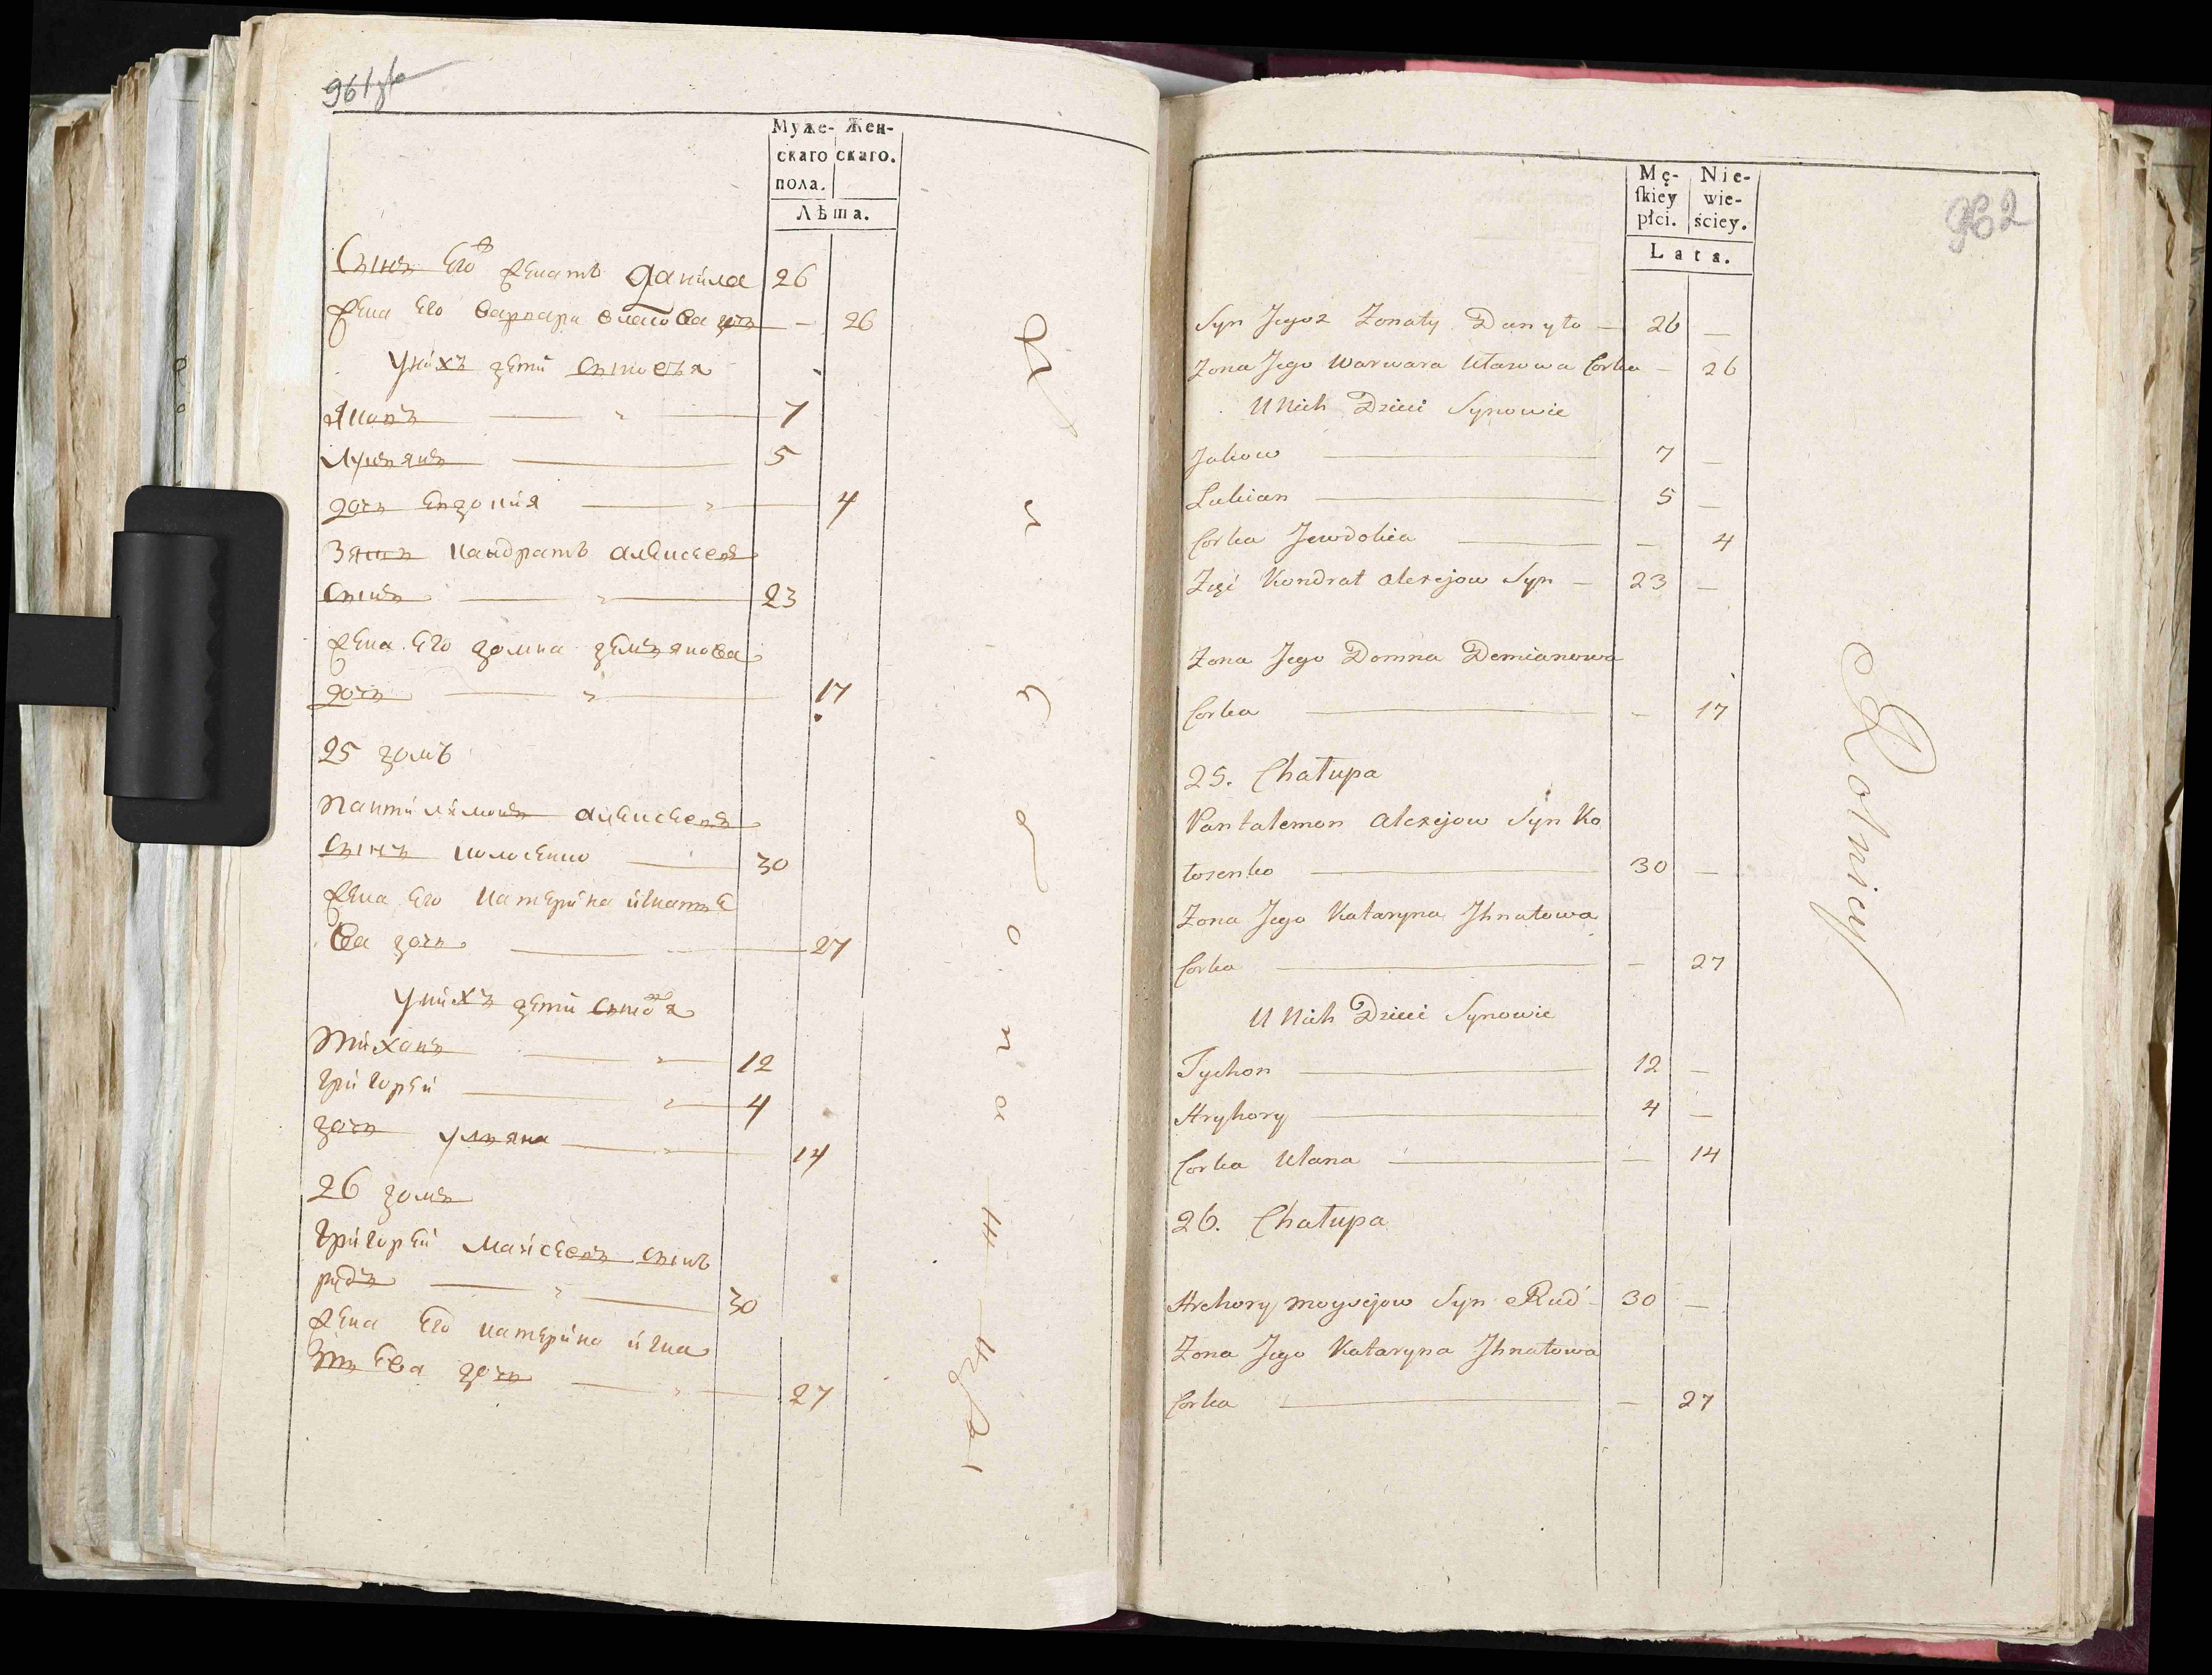 961
Муже- Жен-
скаго скаго.
пола.
Лѣта.
Сынъ Его женатъ Данила 26
жена Его варвара власова дочь — 26
Унихъ дети сыновя
Яковъ — 7
Лукьянъ — 5
дочь Евдокия — 4
Зять кандратъ алексеевъ
сынъ — 23
жена Его домна демьянова
дочь — 17
25 домъ
пантилимонъ алексеевъ
сынъ колосенко — 30
жена Его катерина игнатье
ва дочь — 27
Унихъ дети сыновя
тиханъ — 12
григорей — 4
дочь ульяна — 14
26 домъ
григорей маисеевъ сынъ
рудь — 30
жена Его катерина игна
тьева дочь — 27
962
Mę- Nie-
ſkiey wie-
płci. ściey.
Lata.
Syn Jegoż Żonaty Danyło — 26 —
Żona Jego Warwara Ułasowa Corka — 26
U Nich Dzieci Synowie
Jakow — 7 —
Łukian — 5 —
Corka Jewdokia — — 4
Zięć Kondrat Alexejow Syn — 23 —
Żona Jego Domna Demianowa
Corka — — 17
25. Chałupa
Pantalemon Alexejow Syn Ko
łosenko — 30 —
Żona Jego Kataryna Ihnatowa
Corka — — 27
U Nich Dzieci Synowie
Tychon — 12 —
Hryhory — 4 —
Corka Ulana — — 14
26. Chałupa
Hrehory Moysejow Syn Rud' 30 —
Żona Jego Kataryna Ihnatowa
Corka — — 27
Rolnicy